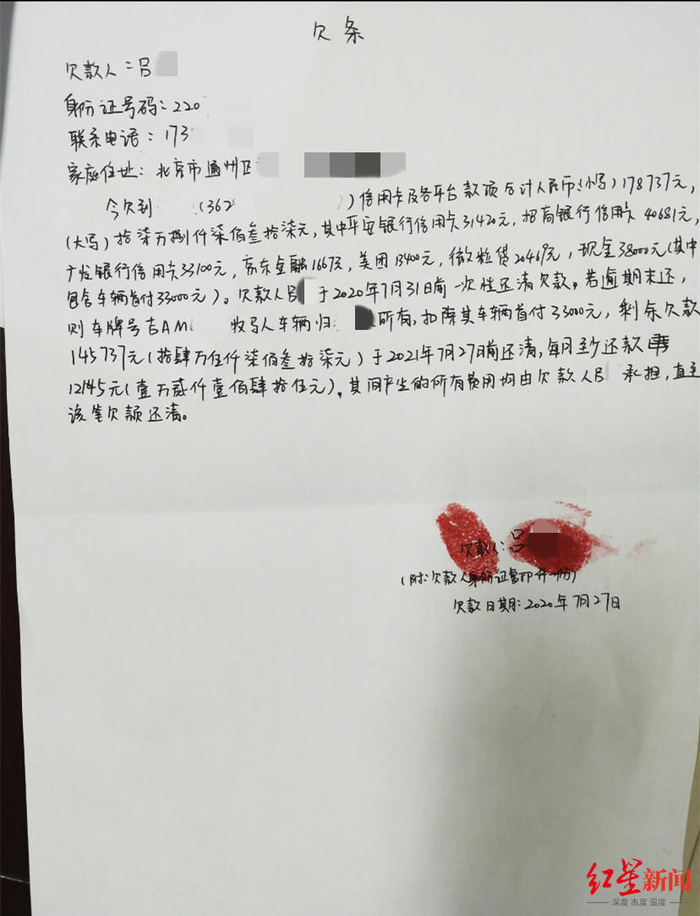 欠条
欠款人：吕
身份证号码：220
联系电话：173
家庭住址：北京市通州区
今欠到 (362 ) 信用卡及各平台款项合计人民币（小写）178737元，
(大写) 拾柒万捌仟柒佰叁拾柒元，其中平安银行信用卡31420元，招商银行信用卡40681元，
广发银行信用卡33100元，京东金融1667元，美团13400元，微粒贷20469元，现金38000元(其中
包含车辆首付33000元)。欠款人吕 于2020年7月31日前一次性还清欠款。若逾期未还，
则车牌号吉AM 车辆归 所有，扣除其车辆首付33000元，剩余欠款
145737元(拾肆万伍仟柒佰叁拾柒元)于2021年7月27日前还清，每月至少还款
12145元(壹万贰仟壹佰肆拾伍元)。其间产生的所有费用均由欠款人吕 承担，直至
该笔欠款还清。
欠款人：吕
(附：欠款人身份证复印件一份)
欠款日期：2020年7月27日
红星新闻
深度 态度 温度